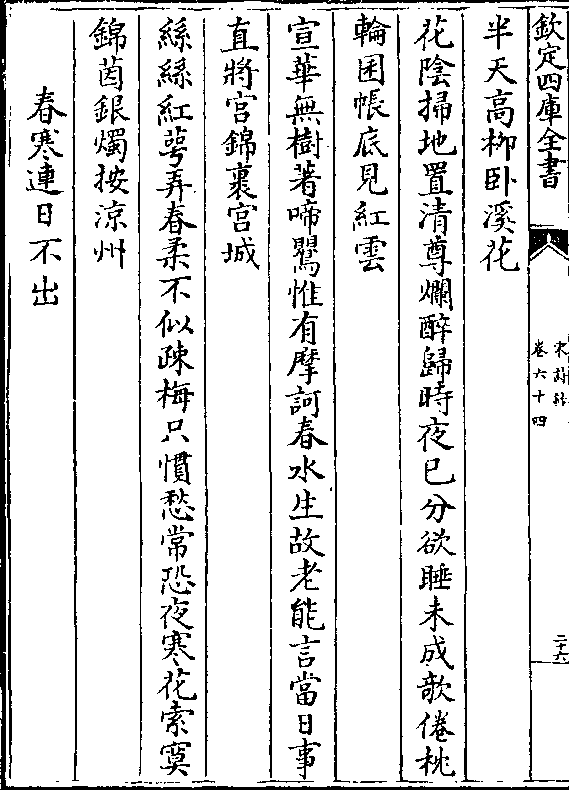 欽定四庫全書
卷六十四
二十六
半天高柳卧溪花
花陰掃地置清尊爛醉歸時夜已分欲睡未成欹倦枕
輪囷帳底見紅雲
宣華無樹著啼鶯惟有摩訶春水生故老能言當日事
直將宮錦裹宮城
絲絲紅萼弄春柔不似疎梅只慣愁常恐夜寒花索寞
錦茵銀燭按涼州
春寒連日不出